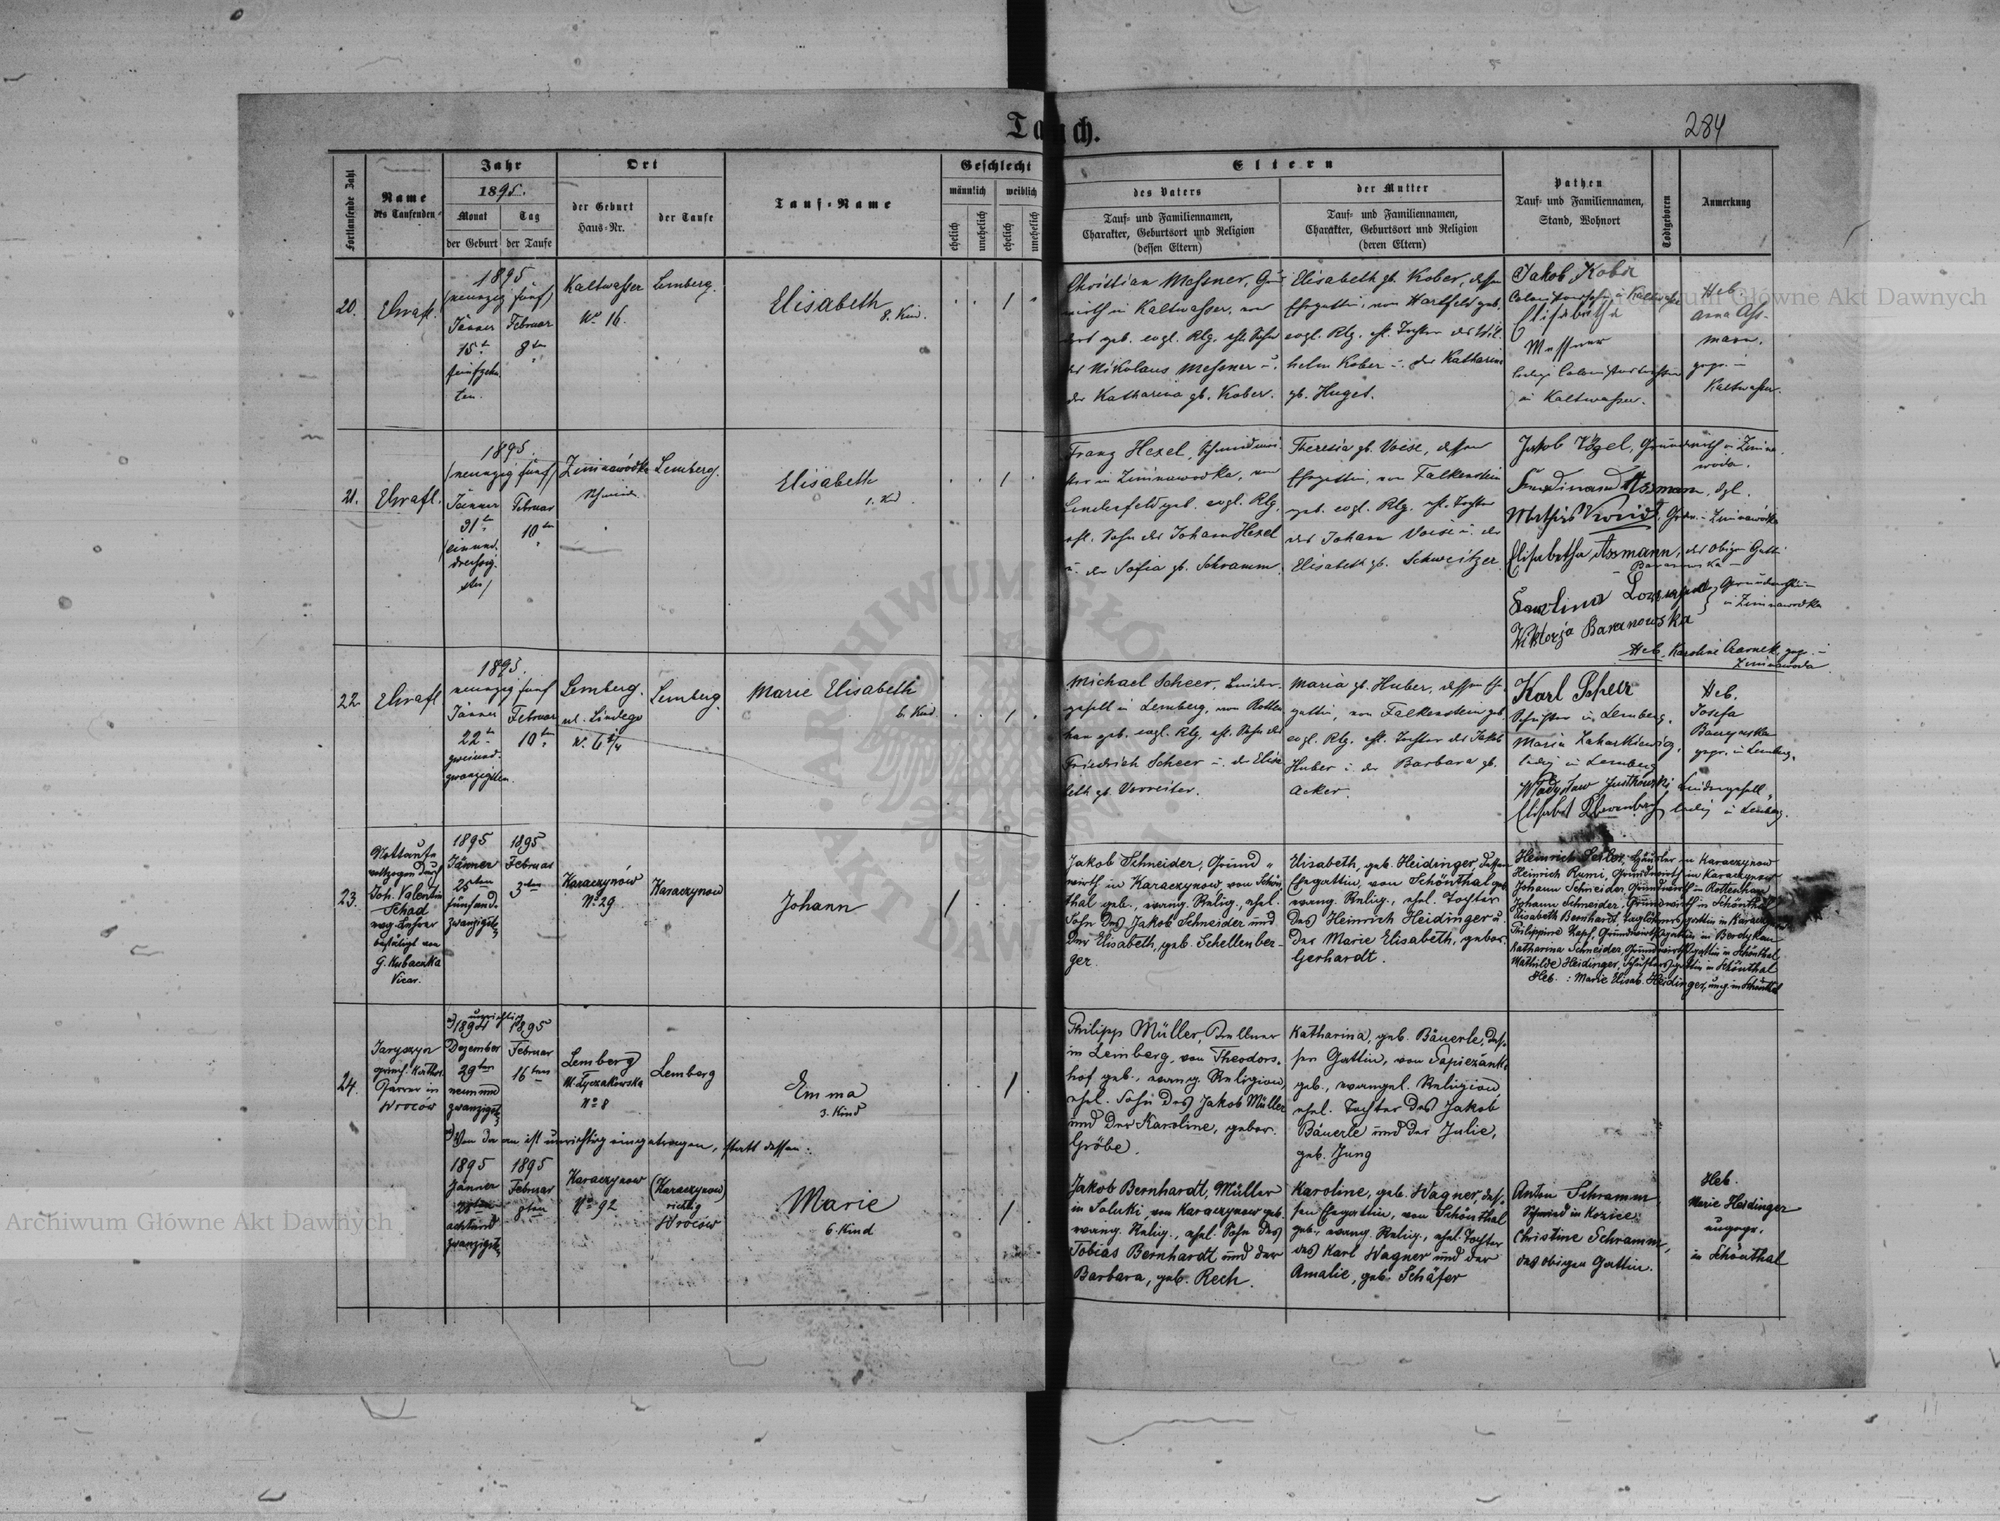 284
Fortlaufende Zahl
Name
des Taufenden
Jahr
1895.
Monat
Tag
der Geburt
der Taufe
Ort
der Geburt
Haus-Nr.
der Taufe
Tauf-Name
Geschlecht
männlich
weiblich
ehelich
unehelich
ehelich
unehelich
Eltern
des Vaters
Tauf- und Familiennamen,
Charakter, Geburtsort und Religion
(dessen Eltern)
der Mutter
Tauf- und Familiennamen,
Charakter, Geburtsort und Religion
(deren Eltern)
Pathen
Tauf- und Familiennamen,
Stand, Wohnort
Todtgeboren
Anmerkung
20.
1895
(neunzig fünf)
Jänner
Februar
15t
8ten
fünfzehn
ten.
Kaltwasser
No 16.
Lemberg.
Elisabeth
8. Kind.
1
Christian Messner,
wirth in Kaltwasser, von
dort geb. evgl. Rlg. ehl. Sohn
des Nikolaus Messner u.
der Katharina gb. Kober.
Elisabeth gb. Kober, dessen
Ehegattin, von Hartfeld geb.
evgl. Rlg. ehl. Tochter des Wil
helm Kober u. der Katharina
gb. Huget.
Jakob Kober
Elisabetha
Messner
in Kaltwasser.
Heb.
Anna Ass-
mann,
gepr. in
Kaltwasser.
21.
1895.
(neunzig fünf)
Jänner
Februar
31t
10ten
(einund
dreissig
sten)
Zimnawodka
Schmiede
Lemberg.
Elisabeth
1. Kd
1
Franz Hexel, Schmiedmei
ster in Zimnawodka, von
Lindenfeld geb. evgl. Rlg.
ehl. Sohn des Johann Hexel
u. der Sofia gb. Schramm.
Theresia gb. Voise, dessen
Ehegattin, von Falkenstein
geb. evgl. Rlg. ehl. Tochter
des Johann Voise u. der
Elisabeth gb. Schweitzer.
Jakob Vogel, Grundwirth in Zimna
woda.
Ferdinand Assmann, dgl.
Elisabetha Assmann, des obigen Gattin
Karolina
Wiktorja Baranowska
in Zimnawodka
Heb. Karoline Czarnek, gepr. in
Zimnawoda
22.
1895.
neunzig fünf
Jänner
Februar
22t
10ten
zweiund
zwanzigsten.
Lemberg.
ul. Lindego
No 6 2/4
Lemberg.
Marie Elisabeth
6. Kind
1
Michael Scheer, Binder
gesell in Lemberg, von Rotten
han geb. evgl. Rlg. ehl. Sohn des
Friedrich Scheer u. der Elisa
beth gb. Vorreiter.
Maria gb. Huber, dessen Ehe
gattin, von Falkenstein geb.
evgl. Rlg. ehl. Tochter des Jakob
Huber u. der Barbara gb.
Acker.
Karl Scheer
Schuster in Lemberg.
Maria Zacharkiewicz,
ledig in Lemberg
Władysław Justkowski, Bindergesell,
ledig in Lemberg.
Heb.
Josefa
gepr. in Lemberg.
23.
Nottaufe
vollzogen durch
Joh. Valentin
Schad
evg. Lehrer
bestätigt von
G. Kubaczka
Vicar.
1895
Jänner
25ten
fünfund
zwanzigst.
1895
Februar
3ten
Karaczynów
No 29
Karaczynow
Johann
1
Jakob Schneider, Grund-
wirth in Karaczynow von Schön
thal geb., evang. Relig., ehel.
Sohn des Jakob Schneider und
der Elisabeth, geb. Schellenber-
ger.
Elisabeth, geb. Heidinger, dessen
Ehegattin, von Schönthal geb
evang. Relig., ehel. Tochter
des Heinrich Heidinger u.
der Marie Elisabeth, gebor.
Gerhardt.
Heinrich Seiler, Häusler in Karaczynow
Heinrich Rumi, Grundwirth in Karaczynow
Johann Schneider, Grundwirth in Rottenhan
Johann Schneider, Grundwirth in Schönthal
Elisabeth Bernhardt, Taglöhnersgattin in Karaczynow
Philippine Kapf, Grundwirthsgattin in Berdykau
Katharina Schneider, Grundwirthsgattin in Schönthal
Mathilde Heidinger, Schustersgattin in Schönthal
Heb.: Marie Elisab. Heidinger, ung. in Schönthal
24.
Jaryszyn
griech. Kathol.
Pfarrer in
Wrocow
unrichtig
1894
Dezember
29ten
neunund
zwanzigst.
1895
Februar
16ten
Lemberg
ul. Łyczakowska
No 8
Lemberg
Emma
3. Kind
1
Philipp Müller,
in Lemberg, von Theodors-
hof geb., evang. Religion,
ehel. Sohn des Jakob Müller
und der Karoline, gebor.
Gröbe.
Katharina, geb. Bäuerle, des-
sen Gattin, von Sapiezanka
geb., evangel. Religion
ehel. Tochter des Jakob
Bäuerle und der Julie,
geb. Jung
Von da an ist unrichtig eingetragen, statt dessen:
1895
Jänner
28ten
achtund
zwanzigst.
1895
Februar
9ten
Karaczynow
No 92
(Karaczynow)
richtig
Wrocow
Marie
6. Kind
1
Jakob Bernhardt, Müller
in Saluki von Karaczynow geb.
evang. Relig., ehel. Sohn des
Tobias Bernhardt und der
Barbara, geb. Rech.
Karoline, geb. Wagner, des-
sen Ehegattin, von Schönthal
geb., evang. Relig., ehel. Tochter
des Karl Wagner und der
Amalie, geb. Schäfer
Anton Schramm,
Schmied in Kozice
Christine Schramm,
des obigen Gattin.
Heb.
Marie Heidinger
ungepr.
in Schönthal
Archiwum Główne Akt Dawnych
Archiwum Główne Akt Dawnych